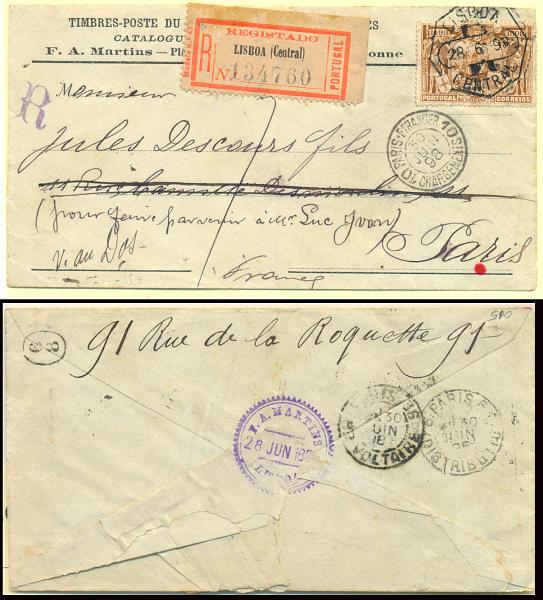 TIMBRES-POSTE DU
CATALOGU
F. A. Martins
onne
REGISTADO
R
LISBOA (Central)
Nº 134760
PORTUGAL
28 6 98
CENTRAL
PORTUGAL CORREIOS
R
Monsieur
Jules Descours fils
PARIS ETRANGER 10
30 JUIN 98
10 CHARGEMENTS
11 Rue Camille Desmoulins, 11
(pour faire parvenir à Mr. Luc Ivon)
V. au Dos
Paris
France
91 Rue de la Roquette 91
F. A. MARTINS
28 JUN 189
30 JUIN 98
VOLTAIRE
PARIS
30 JUIN
DISTRIBUTION